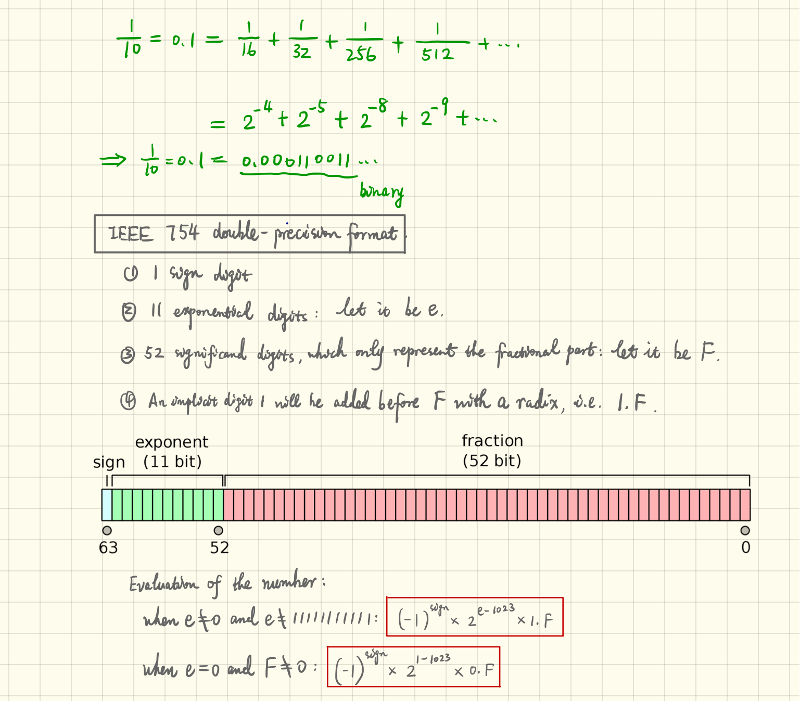 1/10 = 0.1 = 1/16 + 1/32 + 1/256 + 1/512 + ...
= 2^-4 + 2^-5 + 2^-8 + 2^-9 + ...
⇒ 1/10 = 0.1 = 0.000110011 ...
binary
IEEE 754 double-precision format.
① 1 sign digit
② 11 exponential digits: let it be e.
③ 52 significand digits, which only represent the fractional part: let it be F.
④ An implicit digit 1 will be added before F with a radix, i.e. 1.F.
sign exponent (11 bit) fraction (52 bit)
63 52 0
Evaluation of the number:
when e≠0 and e≠11111111111: (-1)^sign × 2^e-1023 × 1.F
when e=0 and F≠0: (-1)^sign × 2^1-1023 × 0.F